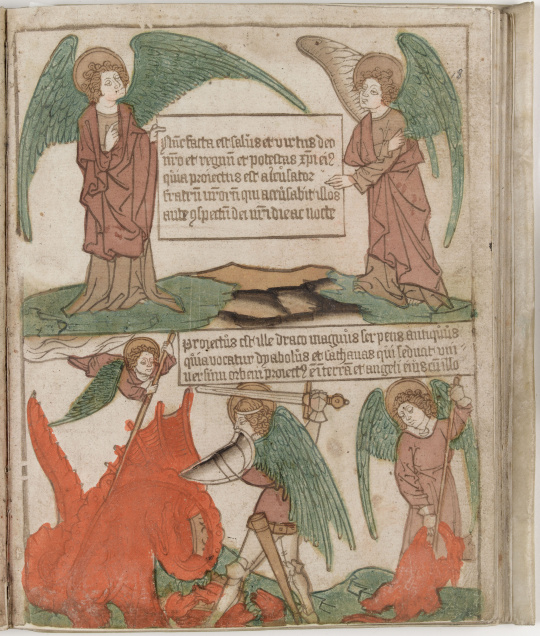 Nūc facta est salus et virtus deo
nr̄o et regnū et potestas xp̄i eiꝰ
quia proiectus est accusator
fratrū nr̄orū qui accusabit illos
ante ꝯspectū dei nr̄i die ac nocte
Proiectus est ille draco magnus serpens antiquus
qui vocatur dyabolus et sathanas qui seducit vni
uersum orbem proiectꝰ ē in terrā et angeli eius cū illo